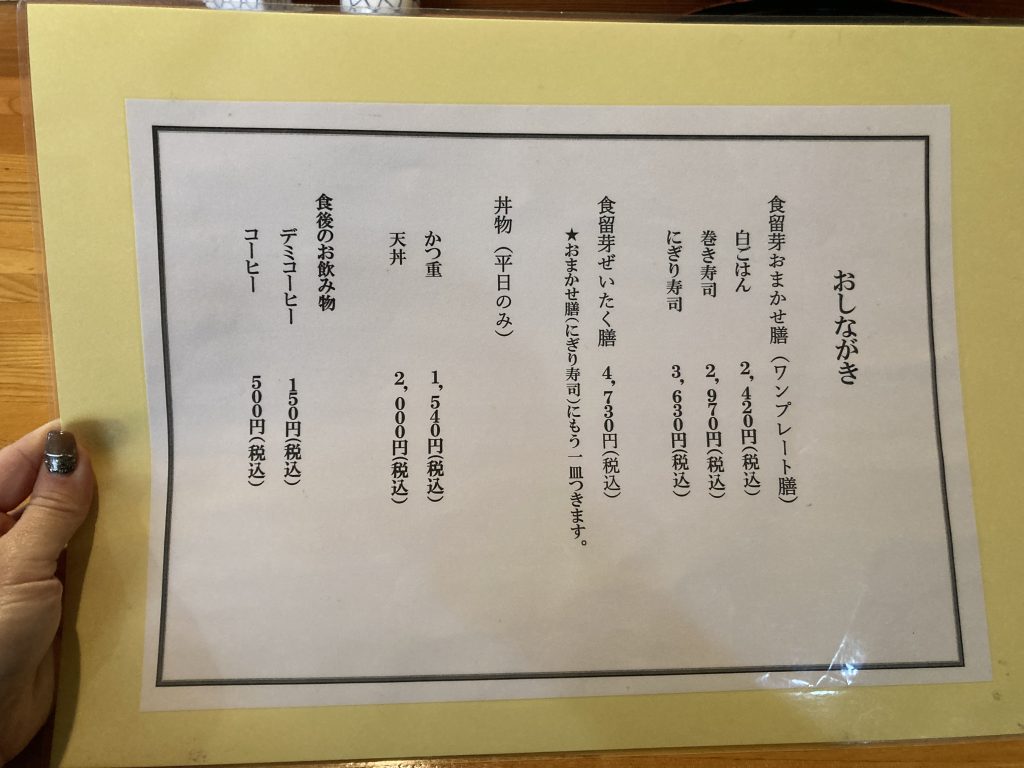 おしながき
食留芽おまかせ膳（ワンプレート膳）
白ごはん 2,420円(税込)
巻き寿司 2,970円(税込)
にぎり寿司 3,630円(税込)
食留芽ぜいたく膳 4,730円(税込)
★おまかせ膳(にぎり寿司)にもう一皿つきます。
丼物（平日のみ）
かつ重 1,540円(税込)
天丼 2,000円(税込)
食後のお飲み物
デミコーヒー 150円(税込)
コーヒー 500円(税込)